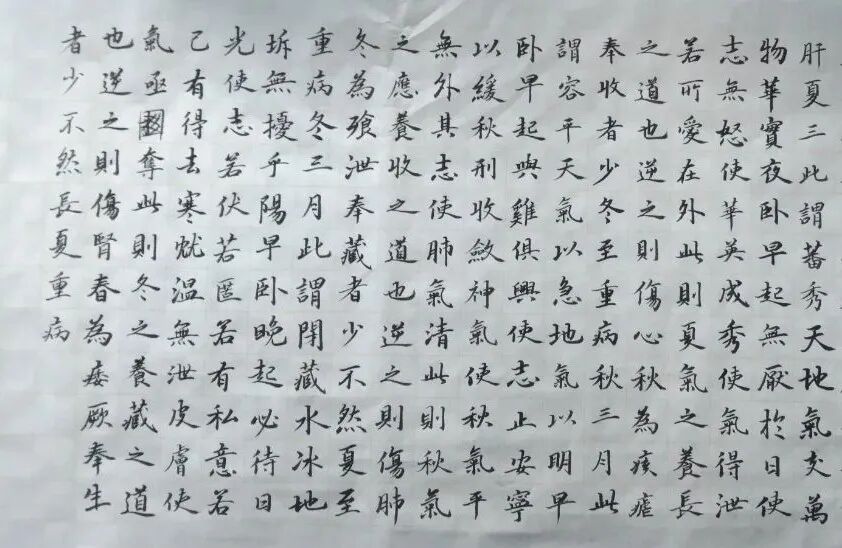 肝夏三此謂蕃秀天地氣交萬
物華實夜卧早起無厭於日使
志無怒使華英成秀使氣得泄
若所愛在外此則夏氣之養長
之道也逆之則傷心秋為痎瘧
奉收者少冬至重病秋三月此
謂容平天氣以急地氣以明早
卧早起與雞俱興使志止安寧
以緩秋刑收斂神氣使秋氣平
無外其志使肺氣清此則秋氣
之應養收之道也逆之則傷肺
冬為飱泄奉藏者少不然夏至
重病冬三月此謂閉藏水冰地
坼無擾乎陽早卧晚起必待日
光使志若伏若匿若有私意若
己有得去寒就温無泄皮膚使
氣亟國奪此則冬之養藏之道
也逆之則傷腎春為痿厥奉生
者少不然長夏重病